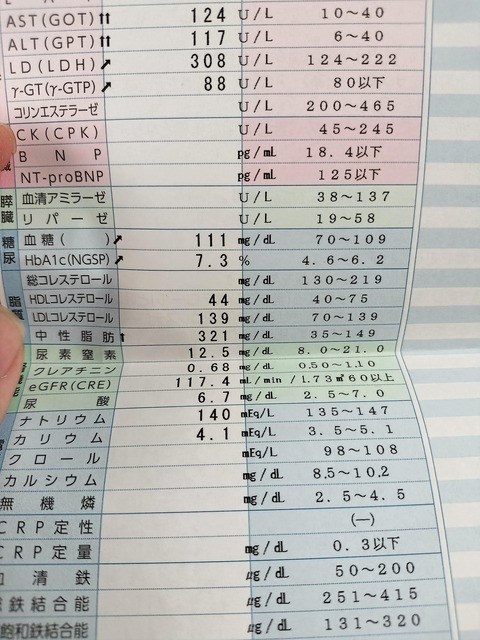 AST(GOT) ⬆⬆ 124 U/L 10～40
ALT(GPT) ⬆⬆ 117 U/L 6～40
LD(LDH) ⬈ 308 U/L 124～222
γ-GT(γ-GTP) ⬈ 88 U/L 80以下
コリンエステラーゼ U/L 200～465
CK(CPK) U/L 45～245
BNP pg/mL 18.4以下
NT-proBNP pg/mL 125以下
膵臓 血清アミラーゼ U/L 38～137
リパーゼ U/L 19～58
糖尿 血糖( ) ⬈ 111 mg/dL 70～109
HbA1c(NGSP) ⬈ 7.3 % 4.6～6.2
総コレステロール mg/dL 130～219
脂質 HDLコレステロール 44 mg/dL 40～75
LDLコレステロール 139 mg/dL 70～139
中性脂肪 ⬆ 321 mg/dL 35～149
尿素窒素 12.5 mg/dL 8.0～21.0
クレアチニン 0.68 mg/dL 0.50～1.10
eGFR(CRE) 117.4 mL/min/1.73㎡ 60以上
尿酸 6.7 mg/dL 2.5～7.0
ナトリウム 140 mEq/L 135～147
カリウム 4.1 mEq/L 3.5～5.1
クロール mEq/L 98～108
カルシウム mg/dL 8.5～10.2
無機燐 mg/dL 2.5～4.5
CRP定性 (－)
CRP定量 mg/dL 0.3以下
清鉄 μg/dL 50～200
鉄結合能 μg/dL 251～415
飽和鉄結合能 μg/dL 131～320